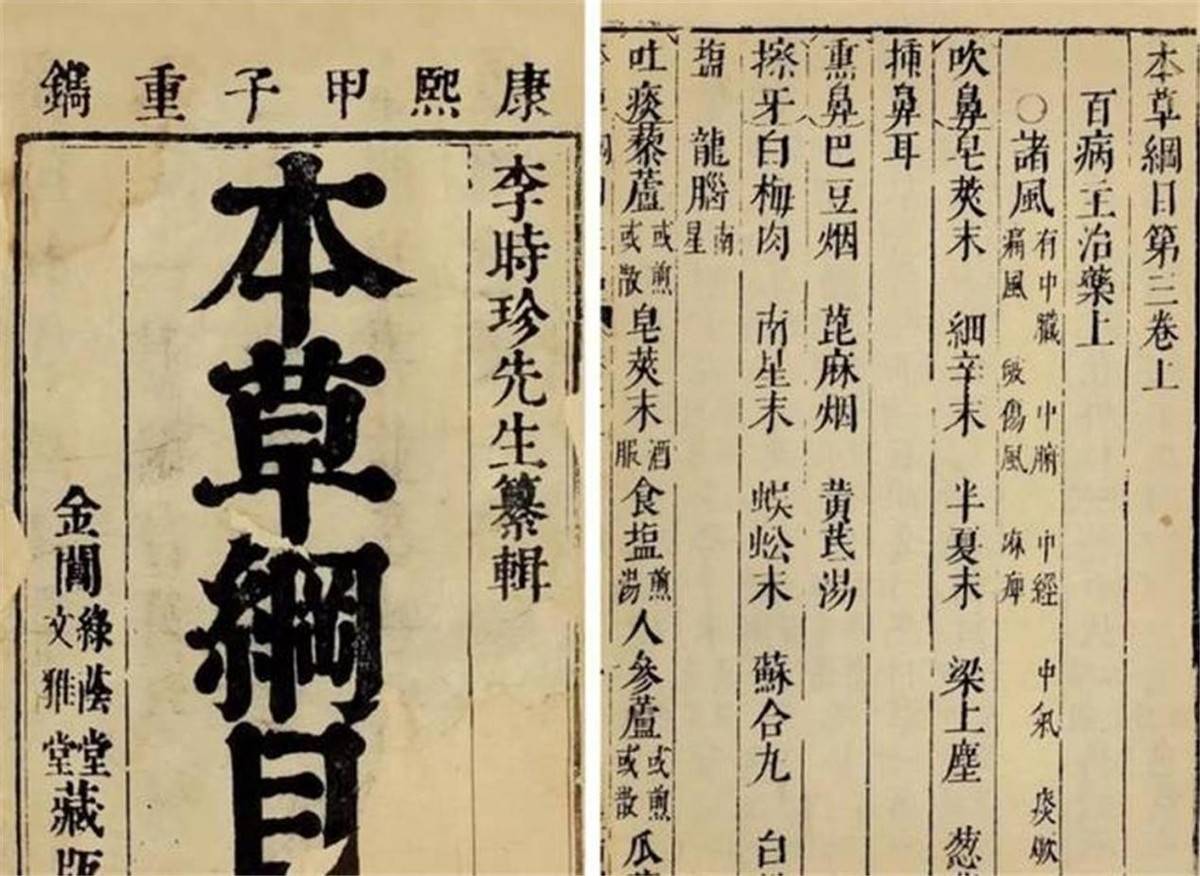 康熙甲子重鐫
李時珍先生纂輯
本草綱目
金閶綠蔭堂文雅堂藏版
本草綱目第三卷上
百病主治藥上
○諸風有中臟 中腑 中經 中氣 痰厥
痛風 破傷風 麻痺
吹鼻皂莢末 細辛末 半夏末 梁上塵 葱
挿鼻耳
熏鼻巴豆烟 蓖麻烟 黄芪湯
擦牙白梅肉 南星末 蜈蚣末 蘇合丸 白
塩 龍腦南星
吐痰藜蘆或煎或散 皂莢末酒服 食塩煎湯 人參蘆或煎或散 瓜